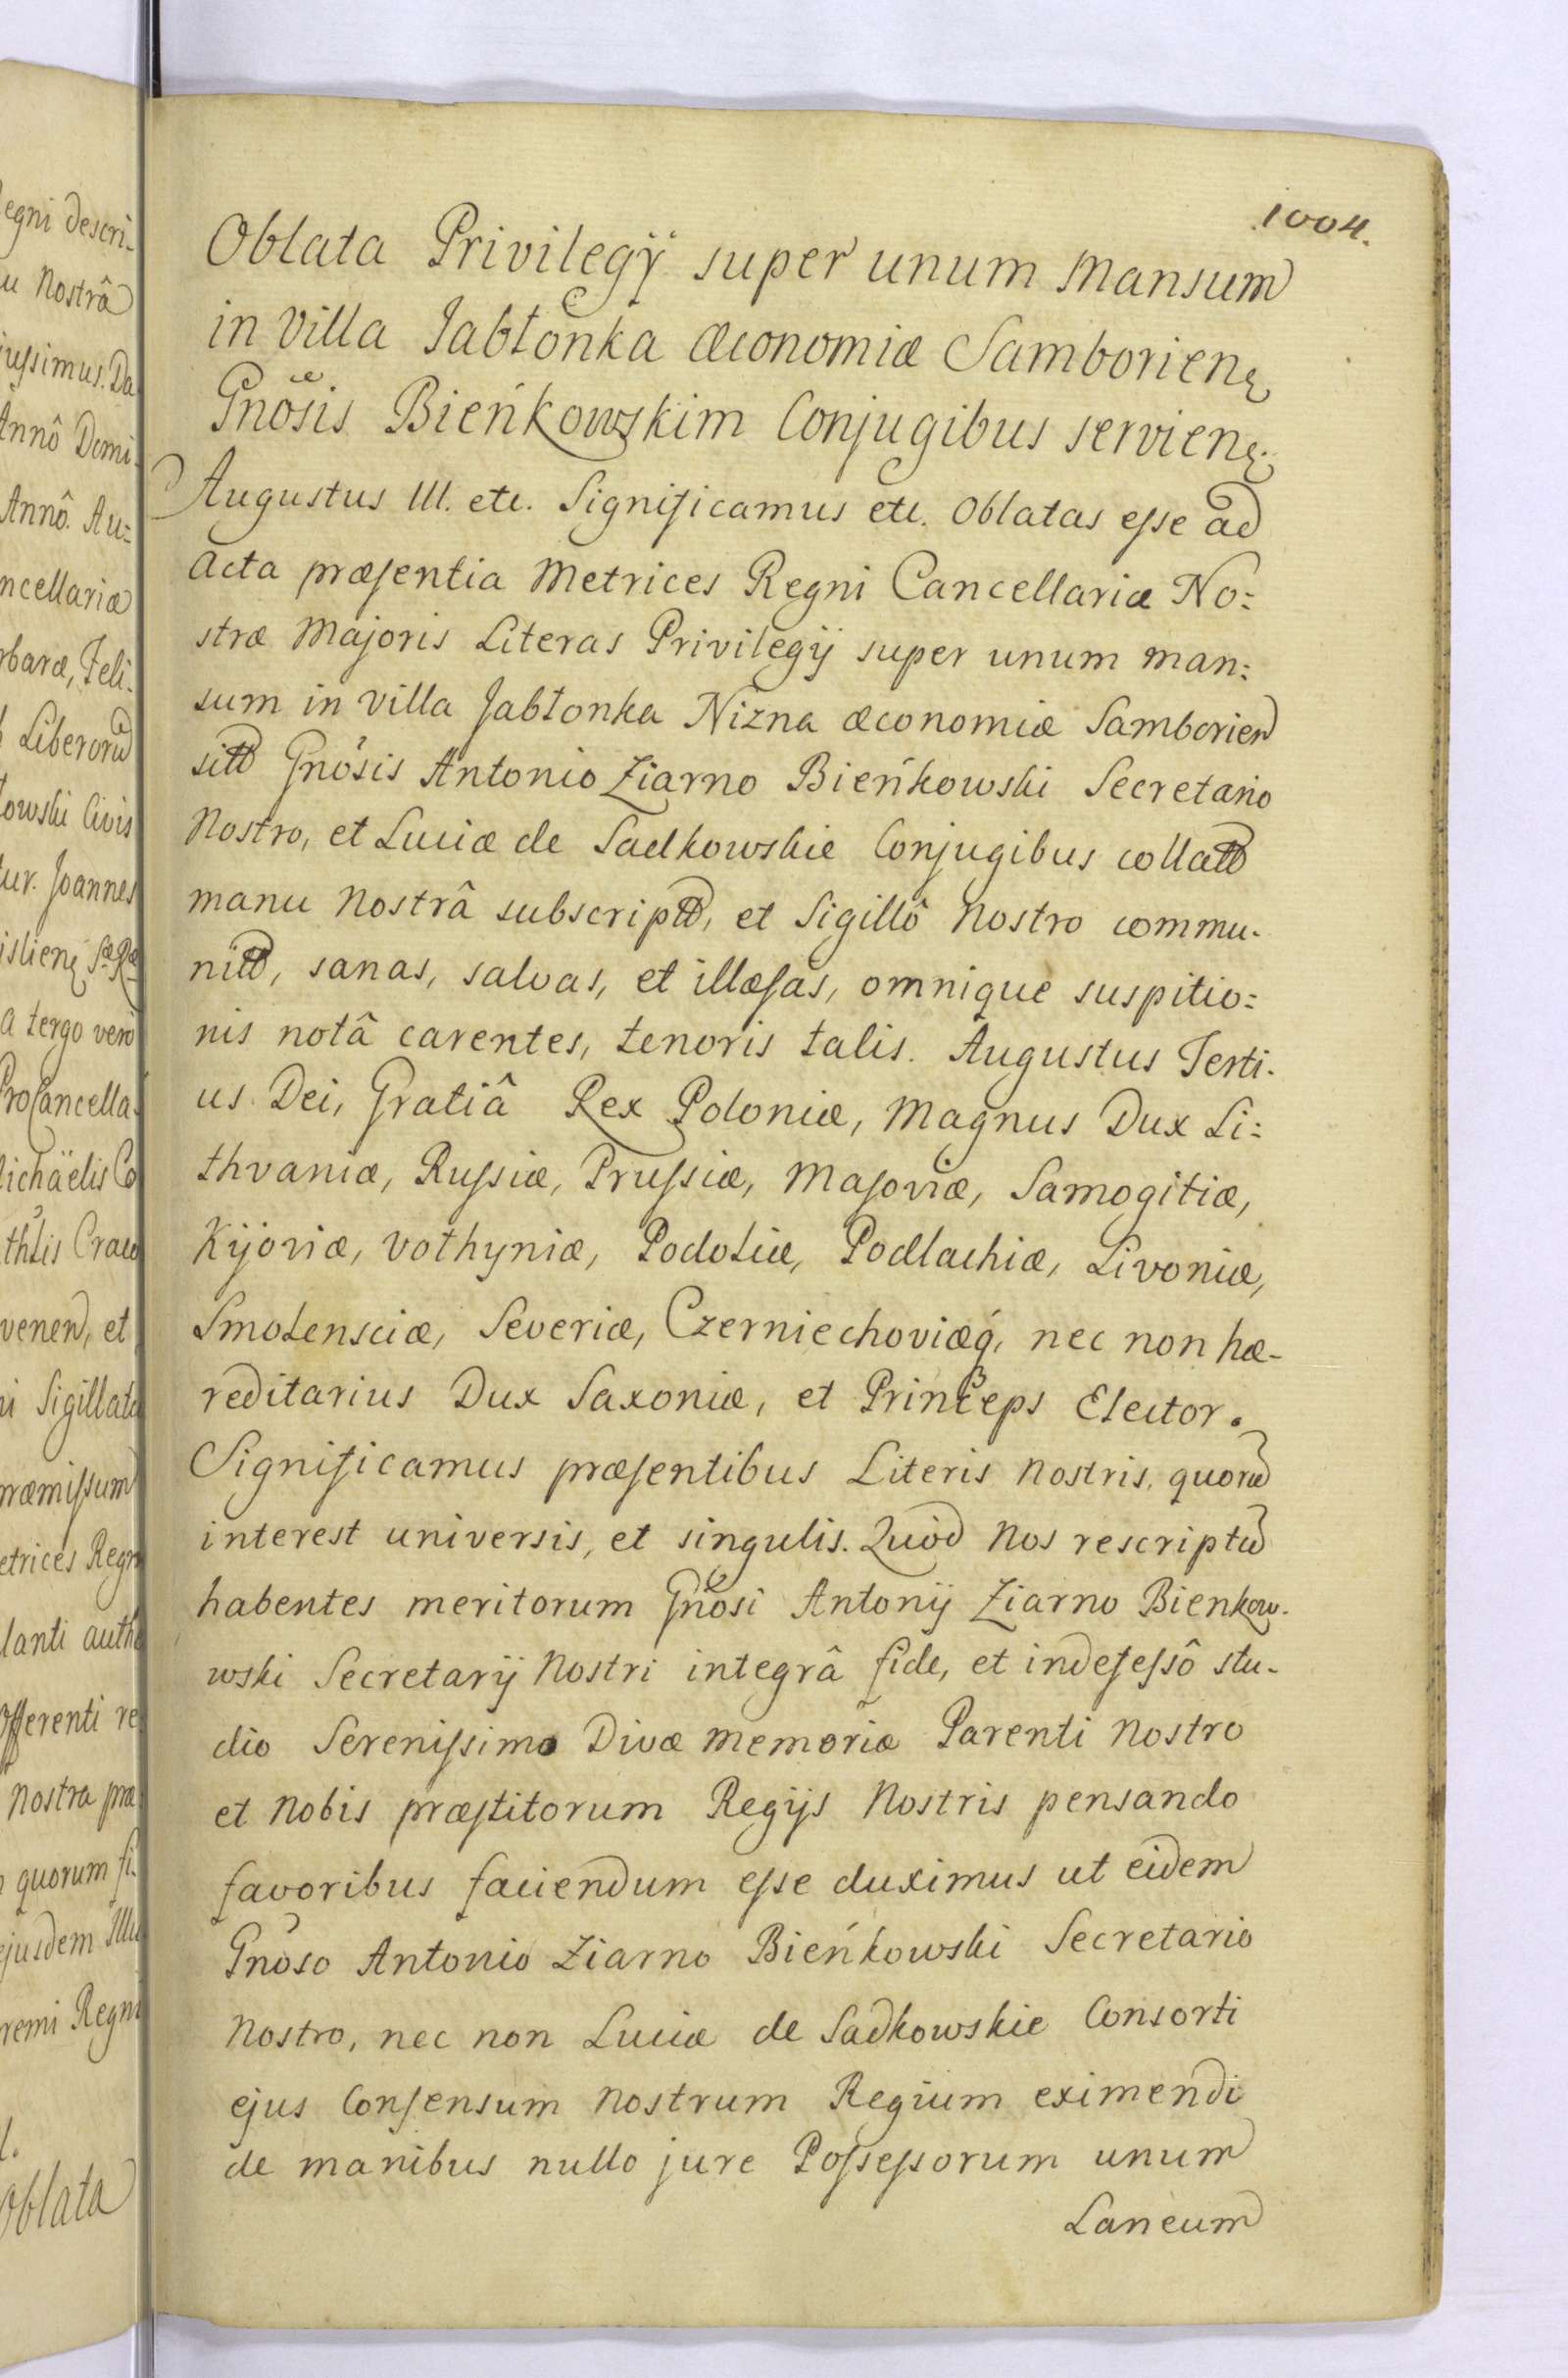 1004.
Oblata Privilegÿ super unum Mansum
in Villa Jabłonka Œconomiæ Samborien̨
Gnõsis Bieńkowskim Conjugibus servien̨.
Augustus III. etc. Significamus etc. Oblatas esse ad
Acta præsentia Metrices Regni Cancellariæ No:
stræ Majoris Literas Privilegÿ super unum man:
sum in Villa Jabłonka Nizna œconomiæ Samborien
sitt Gnõsis Antonio Ziarno Bieńkowski Secretario
Nostro, et Luciæ de Sadkowskie Conjugibus collatt
manu Nostrâ subscriptt, et Sigillô Nostro commu-
nitt, sanas, salvas, et illæsas, omnique suspitio:
nis notâ carentes, tenoris talis. Augustus Terti-
us Dei, Gratiâ Rex Poloniæ, Magnus Dux Li:
thvaniæ, Russiæ, Prussiæ, Masoviæ, Samogitiæ,
Kijoviæ, Vołhyniæ, Podoliæ, Podlachiæ, Livoniæ,
Smolensciæ, Severiæ, Czerniechoviæq́, nec non hæ-
reditarius Dux Saxoniæ, et Princeps Elector.
Significamus præsentibus Literis Nostris, quorũ
interest universis, et singulis. Quòd Nos rescriptũ
habentes meritorum Gnõsi Antonÿ Ziarno Bienkow-
wski Secretarÿ Nostri integrâ fide, et indefessô stu-
dio Serenissimo Divæ Memoriæ Parenti Nostro
et Nobis præstitorum Regÿs Nostris pensando
favoribus faciendum esse duximus ut eidem
Gnõso Antonio Ziarno Bieńkowski Secretario
Nostro, nec non Luciæ de Sadkowskie Consorti
ejus Consensum Nostrum Regium eximendi
de manibus nullo jure Possessorum unum
Laneum